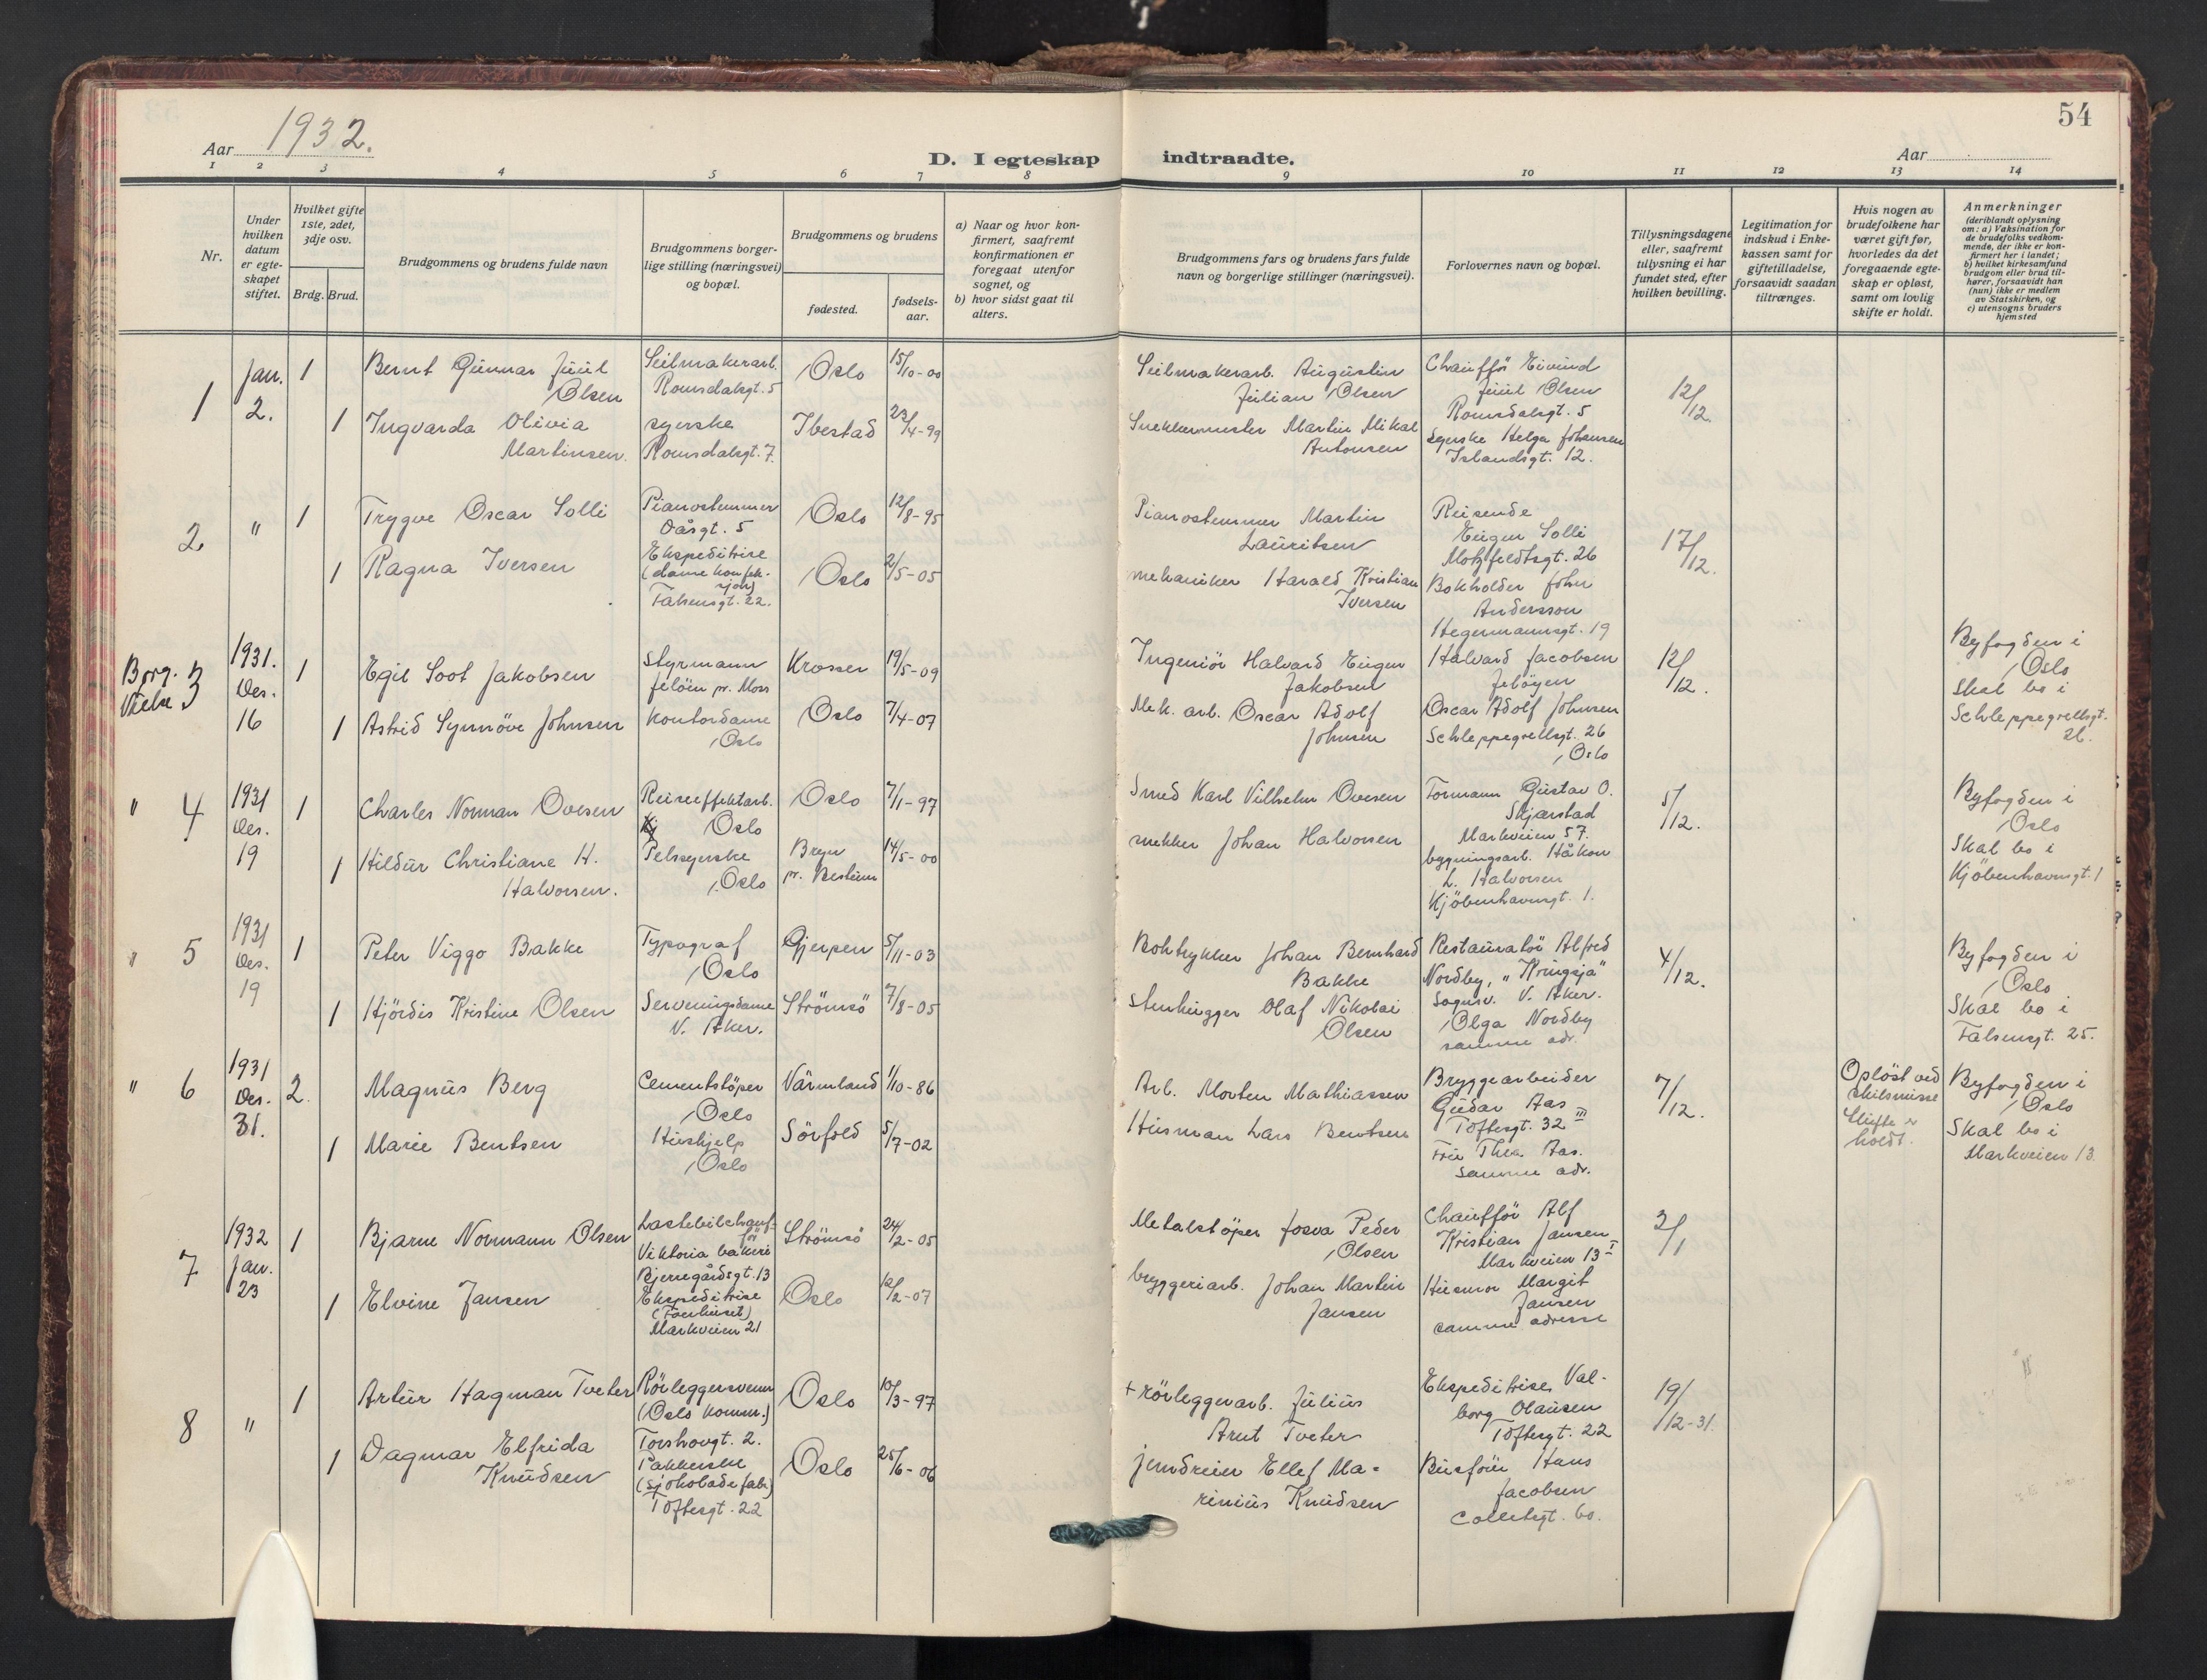 54
Aar 1932.
D. I egteskap indtraadte.
Aar
1 2 3 4 5 6 7 8 9 10 11 12 13 14
Nr.
Under
hvilken
datum
er egte-
skapet
stiftet.
Hvilket gifte
1ste, 2det,
3dje osv.
Brdg. Brud.
Brudgommens og brudens fulde navn
Brudgommens borger-
lige stilling (næringsvei)
og bopæl.
Brudgommens og brudens
fødested.
fødsels-
aar.
a) Naar og hvor kon-
firmert, saafremt
konfirmationen er
foregaat utenfor
sognet, og
b) hvor sidst gaat til
alters.
Brudgommens fars og brudens fars fulde
navn og borgerlige stillinger (næringsvei).
Forlovernes navn og bopæl.
Tillysningsdagene
eller, saafremt
tillysning ei har
fundet sted, efter
hvilken bevilling.
Legitimation for
indskud i Enke-
kassen samt for
giftetilladelse,
forsaavidt saadan
tiltrænges.
Hvis nogen av
brudefolkene har
været gift før,
hvorledes da det
foregaaende egte-
skap er opløst,
samt om lovlig
skifte er holdt.
Anmerkninger
(deriblandt oplysning
om: a) Vaksination for
de brudefolks vedkom-
mende, der ikke er kon-
firmert her i landet;
b) hvilket kirkesamfund
brudgom eller brud til-
hører, forsaavidt han
(hun) ikke er medlem
av Statskirken, og
c) utensogns bruders
hjemsted
1
Jan.
2.
1
Bernt Gunnar Juul
Olsen
Seilmakerarb.
Romsdalsgt. 5
Oslo
15/10-00
Seilmakerarb. Augustin
Julian Olsen
Chauffør Eivind
Juul Olsen
Romsdalsgt. 5
12/12.
1
Ingvarda Olivia
Martinsen.
syerske
Romsdalsgt. 7.
Ibestad
23/4-99
Snekkermester Martin Mikal
Antonsen
Syerske Helga Johansen
Islandsgt. 12.
2
"
1
Trygve Oscar Solli
Pianostemmer
Dåsgt. 5
Oslo
12/8-95
Pianostemmer Martin
Lauritsen
Reisende
Eugen Solli
Motzfeldtsgt. 26
17/12.
1
Ragna Iversen
Ekspeditrise
(dame konfek-
sjon)
Falsensgt. 22.
Oslo
2/5-05
mekaniker Harald Kristian
Iversen
Bokholder John
Andersson
Hegermannsgt. 19
Borg.
Vielse
3
1931.
Des.
16
1
Egil Soot Jakobsen
Styrmann
Jelöen pr. Moss
Krosser
19/5-09
Ingeniör Halvard Eugen
Jakobsen
Halvard Jacobsen
Jelöyen
12/12.
Byfogden i
Oslo
Skal bo i
Schleppegrellsgt.
26.
1
Astrid Synnöve Johnsen
Kontordame
Oslo
Oslo
7/4-07
Mek. arb. Oscar Adolf
Johnsen
Oscar Adolf Johnsen
Schleppegrellsgt. 26
Oslo
"
4
1931
Des.
19
1
Charles Norman Ovesen
Reiseeffektarb.
Oslo
Oslo
7/1-97
Smed Karl Vilhelm Ovesen
Formann Gustav O.
Skjarstad
Markveien 57.
5/12.
Byfogden i
Oslo
Skal bo i
Kjöbenhavnsgt. 1
1
Hildur Christiane H.
Halvorsen.
Pelssyerske
Oslo
Bryn
pr. Bestum
14/5-00
snekker Johan Halvorsen
bygningsarb. Håkon
L. Halvorsen
Kjöbenhavnsgt. 1.
"
5
1931
Des.
19
1
Peter Viggo Bakke
Typograf
Oslo
Gjerpen
5/11-03
Boktrykker Johan Bernhard
Bakke
Restauratör Alfred
Nordby, "Kringsjå"
Sognsv. V. Aker.
4/12.
Byfogden i
Oslo
Skal bo i
Falsensgt. 25.
1
Hjördis Kristine Olsen
Serveringsdame
V. Aker.
Strömsö
7/8-05
Stenhugger Olaf Nikolai
Olsen
Olga Nordby
samme adr.
"
6
1931
Des.
31.
2.
Magnus Berg
Cementstöper
Oslo
Värmland
1/10-86
Arb. Morten Mathiassen
Bryggearbeider
Gudar Aas
Toftesgt. 32 III
7/12.
Oplöst ved
skilsmisse
Skifte er
holdt.
Byfogden i
Oslo
Skal bo i
Markveien 13.
1
Marie Bentsen
Hushjelp
Oslo
Sörfold
5/7-02
Husman Lars Bentsen
Fru Thea Aas.
Samme adr.
7
1932
Jan.
23
1
Bjarne Normann Olsen
Lastebilchauf-
för
Viktoria bakeri
Bjerregårdsgt. 13
Strömsö
24/2-05
Metalstöper Josva Peder
Olsen
Chaufför Alf
Kristian Jansen
Markveien 13 I
3/1
1
Elvine Jansen
Ekspeditrise
(Fanhuset)
Markveien 21
Oslo
12/2-07
bryggeriarb. Johan Martin
Jansen
Husmor Margit
Jansen
samme adresse
8
"
1
Artur Hagman Tveter
Rörleggersvenn
(Oslo komm.)
Torshovgt. 2.
Oslo
10/3-97
+ rörleggerarb. Julius
Arnt Tveter
Ekspeditrise Val-
borg Olausen
Toftesgt. 22
19/12-31.
1
Dagmar Elfrida
Knudsen
Pakkerske
(sjokoladefabr.)
Toftesgt. 22
Oslo
25/6-06
jerndreier Ellef Ma-
rinius Knudsen
Busför Hans
Jacobsen
Colletsgt. 60.